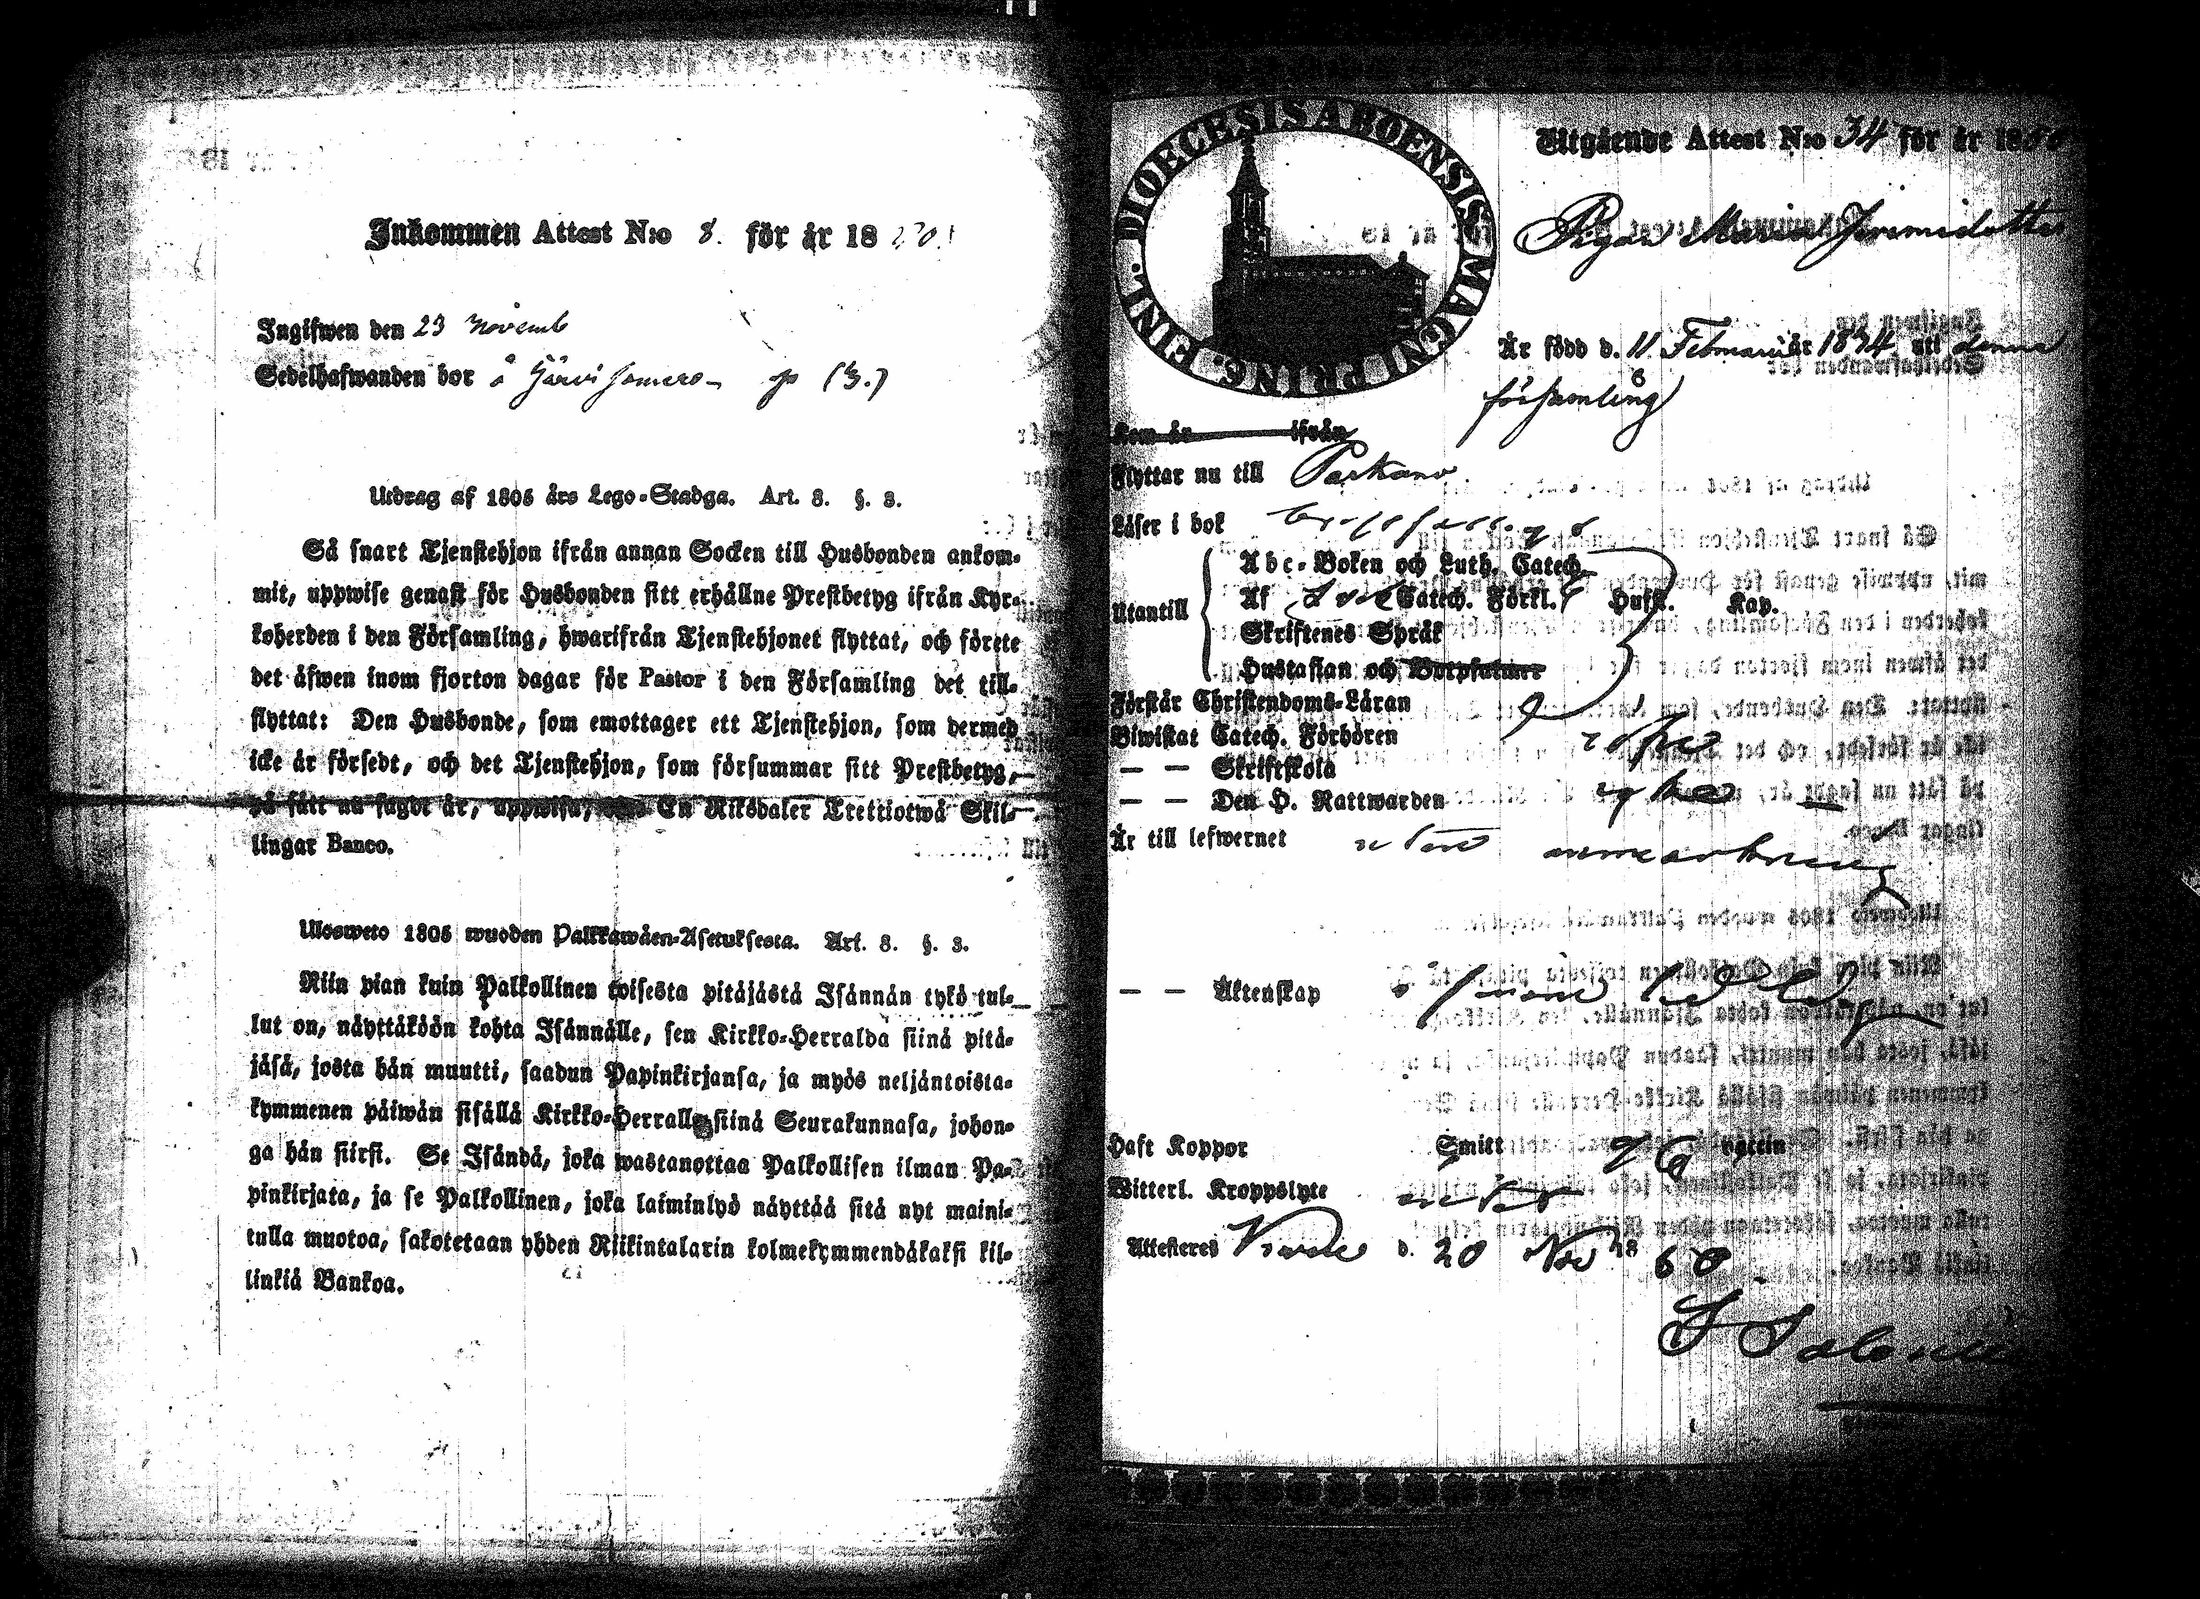 Inkommen Attest N:o 8. för år 18
Ingifwen den 23 Novemb
Sedelhafwanden bor å
Utdrag af 1805 års Lego-Stadga. Art. 8. §. 3.
Så snart Tjenstehjon ifrån annan Socken till Husbonden ankom-
mit, uppwise genast för Husbonden sitt erhållne Prestbetyg ifrån Kyr-
koherden i den Församling, hwarifrån Tjenstehjonet flyttat, och förete
det äfwen inom fjorton dagar för Pastor i den Församling det till-
flyttat: Den Husbonde, som emottager ett Tjenstehjon, som dermed
icke är försedt, och det Tjenstehjon, som försummar sitt Prestbetyg,
på sått nu sagdt är, uppwisa, En Riksdaler Trettiotwå Skil-
lingar Banco.
Ulosweto 1805 wuoden Palkkawäen-Asetuksesta. Art. 8. §. 3.
Niin pian kuin Palkollinen toisesta pitäjästä Isännän tykö tul-
lut on, näyttäköön kohta Isännälle, sen Kirkko-Herralda siinä pitä-
jäsä, josta hän muutti, saadun Papinkirjansa, ja myös neljäntoista-
kymmenen päiwän sisällä Kirkko-Herralle siinä Seurakunnasa, johon-
ga hän siirsi. Se Isändä, joka wastanottaa Palkollisen ilman Pa-
pinkirjata, ja se Palkollinen, joka laiminlyö näyttää sitä nyt maini-
tulla muotoa, sakotetaan yhden Riikintalarin kolmekymmendäkaksi kil-
linkiä Bankoa.
FINL. DIOECESIS ABOENSIS MAGNI PRINC.
Utgående Attest N:o 34 för år 18
Pigan Maria Jeremidotter
Är född d. 11 Februari år 1834 uti denna
församling
Kom år ifrån
Flyttar nu till Parkano
Läser i bok
Utantill
Abc-Boken och Luth. Catech.
Af Catech. Förkl. Husf. Kap.
Skriftenes Språk
Hustaflan och
Förstår Christendoms-Läran
Biwistat Catech. Förhören
— — Skriftskola
— — Den H. Nattwarden
Är till lefwernet utan anmärkning
— — Äktenskap
Haft Koppor Smitt
Witterl. Kroppslyte
Attesteres d. 20 Nov 1860.